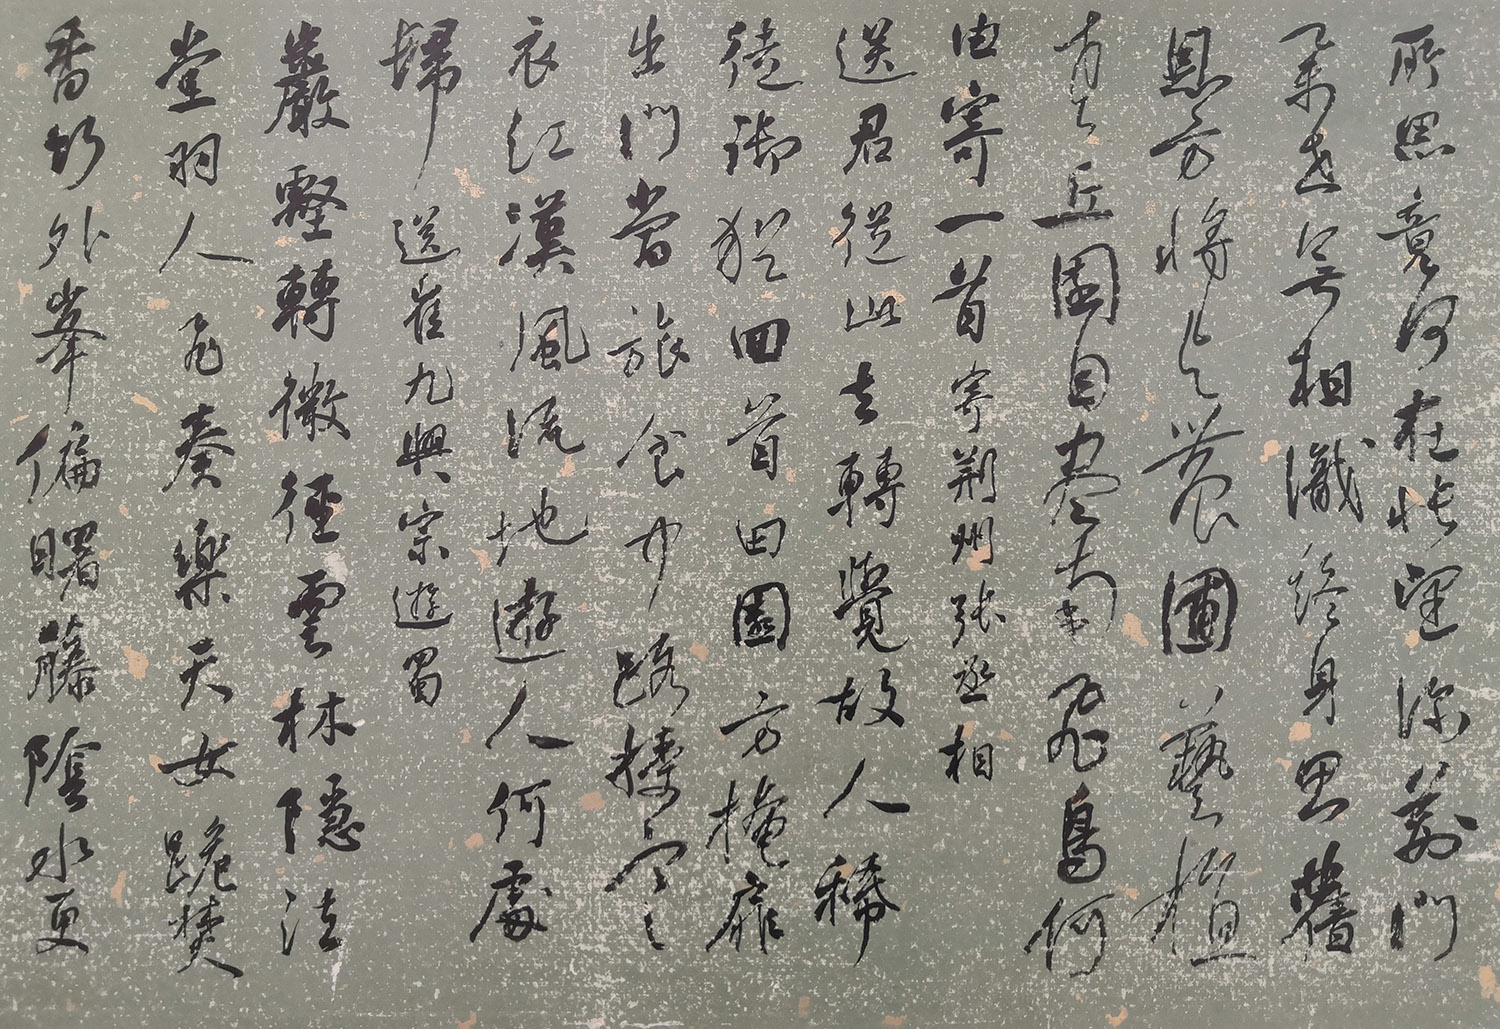 所思竟何在悵望深荊門
舉世無相識終身思舊
恩方將與農圃藝植
老丘園目盡南飛鳥何
由寄一首 寄荊州張丞相
送君從此去轉覺故人稀
徒御猶回首田園方掩扉
出門當旅食中路授寒
衣江漢風流地遊人何處
歸 送崔九興宗遊蜀
巖壑轉微徑雲林隱法
堂羽人飛奏樂天女跪焚
香竹外峯偏曙藤陰水更